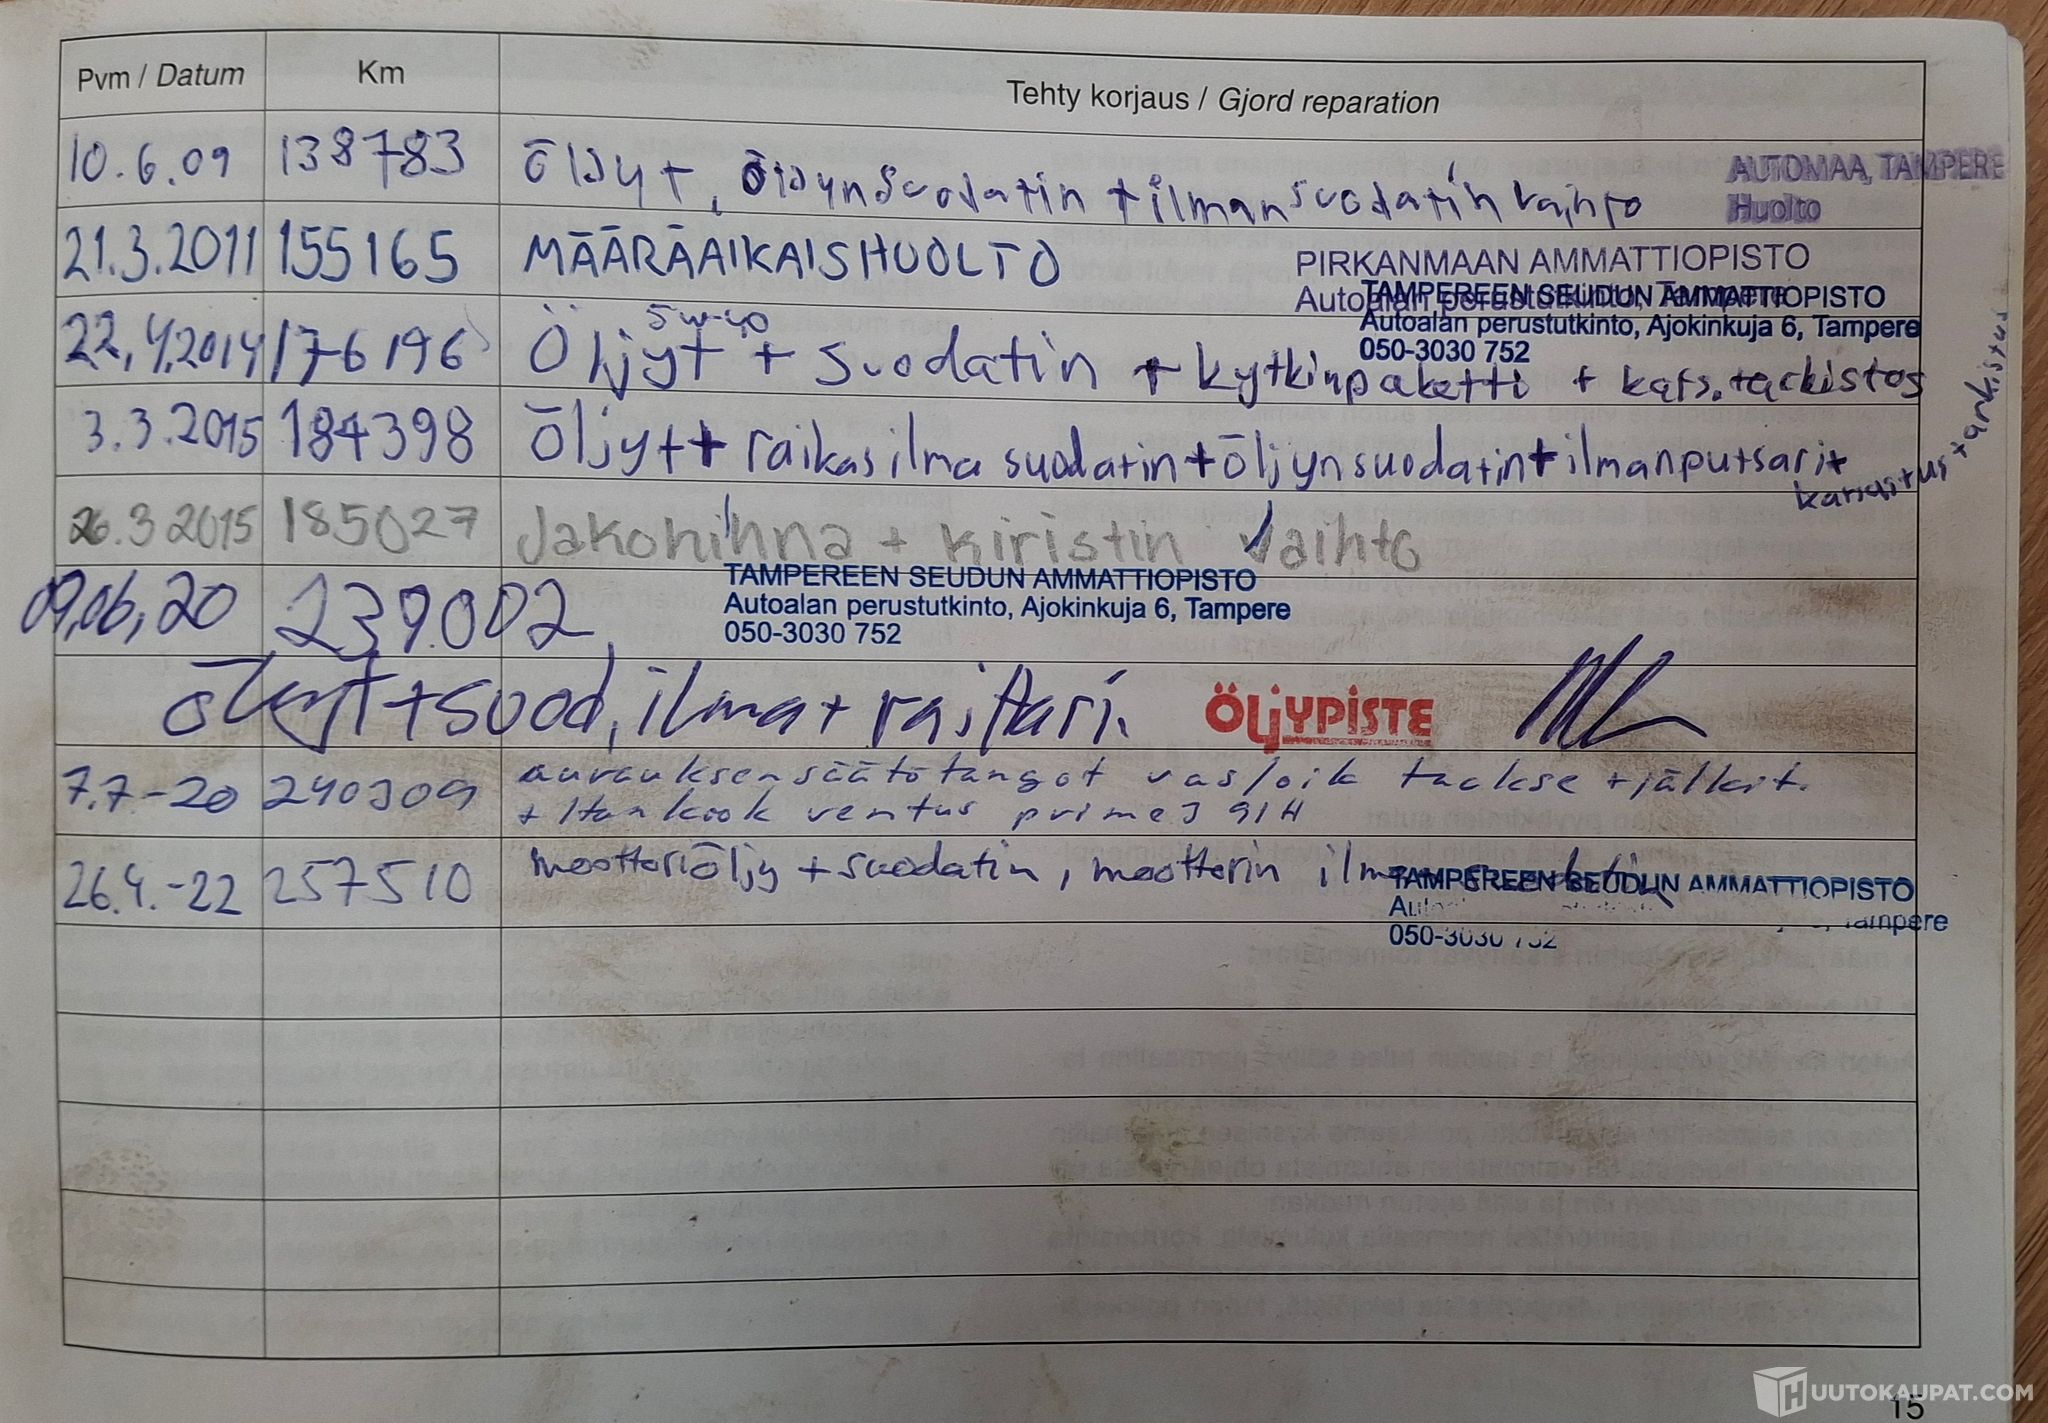 Pvm / Datum Km Tehty korjaus / Gjord reparation
10.6.09 138783 Öljyt, öljynsuodatin + ilmansuodatin vaihto AUTOMAA, TAMPERE
Huolto
21.3.2011 155165 MÄÄRÄAIKAISHUOLTO PIRKANMAAN AMMATTIOPISTO
Autoalan perustutkinto, Tampere
TAMPEREEN SEUDUN AMMATTIOPISTO
Autoalan perustutkinto, Ajokinkuja 6, Tampere
050-3030 752
5w-40
22.4.2014 176196 Öljyt + suodatin + kytkinpaketti + kats.tarkistus
3.3.2015 184398 Öljyt + raikasilma suodatin + öljynsuodatin + ilmanputsari +
karustus + tarkistus
26.3 2015 185027 Jakohihna + kiristin vaihto
09,06,20 239.002 TAMPEREEN SEUDUN AMMATTIOPISTO
Autoalan perustutkinto, Ajokinkuja 6, Tampere
050-3030 752
öljyt + suod, ilma + raittari. ÖLJYPISTE
7.7-20 240309 aurauksensäätötangot vas/oik taakse + jälkit.
+ Hankook ventus prime3 91H
26.4.-22 257510 moottoriöljy + suodatin, moottorin ilmansuodatin
TAMPEREEN SEUDUN AMMATTIOPISTO
Tampere
050-3030 752
15
HUUTOKAUPAT.COM